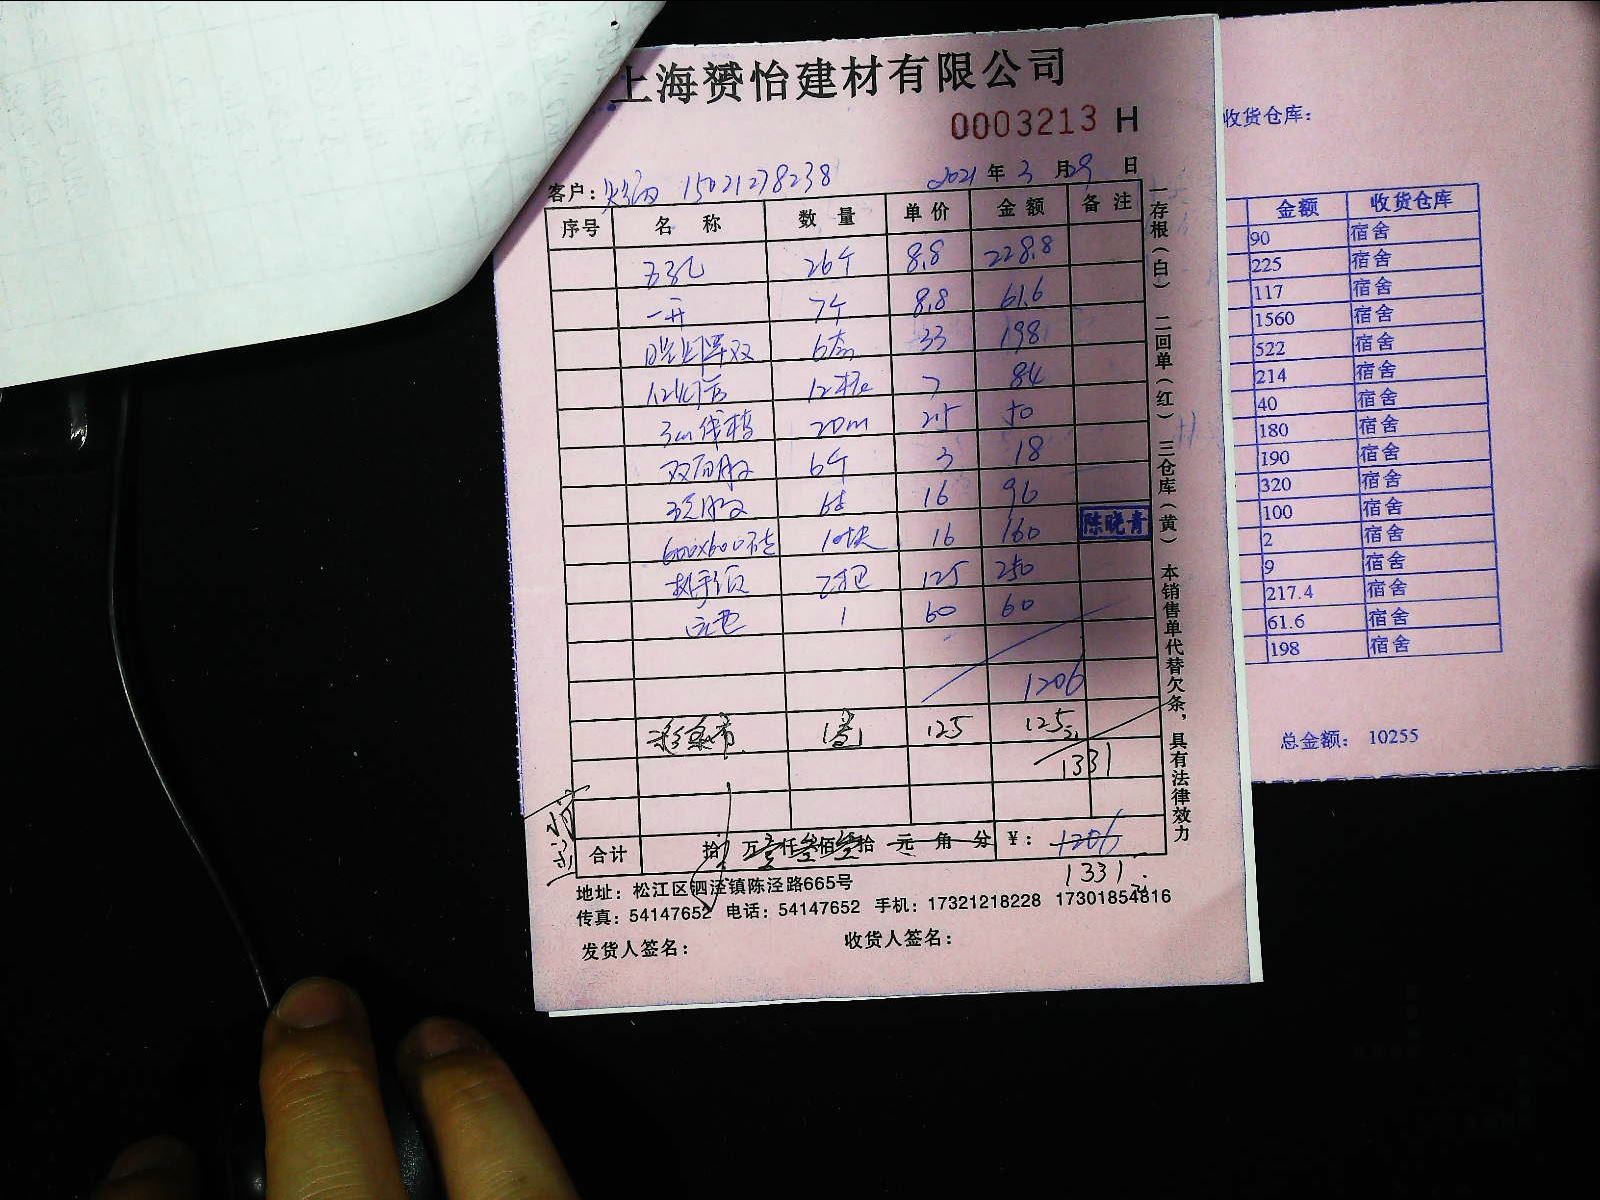 上海赟怡建材有限公司
0003213 H
客户： 15021278238 2021年3月29日
序号 名称 数量 单价 金额 备注
五孔 26个 8.8 228.8
一开 7个 8.8 61.6
6套 33 198
12根 7 84
3cm线槽 20m 2.5 50
双面胶 6个 3 18
玻胶 6支 16 96
600x600 10块 16 160
2把 125 250
1 60 60
1206
125 125
1331
合计 拾 万壹仟叁佰叁拾 元 角 分 ¥： 1206
1331
地址：松江区泗泾镇陈泾路665号
传真：54147652 电话：54147652 手机：17321218228 17301854816
发货人签名： 收货人签名：
一存根（白） 二回单（红） 三仓库（黄） 本销售单代替欠条，具有法律效力
陈晓青
收货仓库：
金额 收货仓库
90 宿舍
225 宿舍
117 宿舍
1560 宿舍
522 宿舍
214 宿舍
40 宿舍
180 宿舍
190 宿舍
320 宿舍
100 宿舍
2 宿舍
9 宿舍
217.4 宿舍
61.6 宿舍
198 宿舍
总金额： 10255